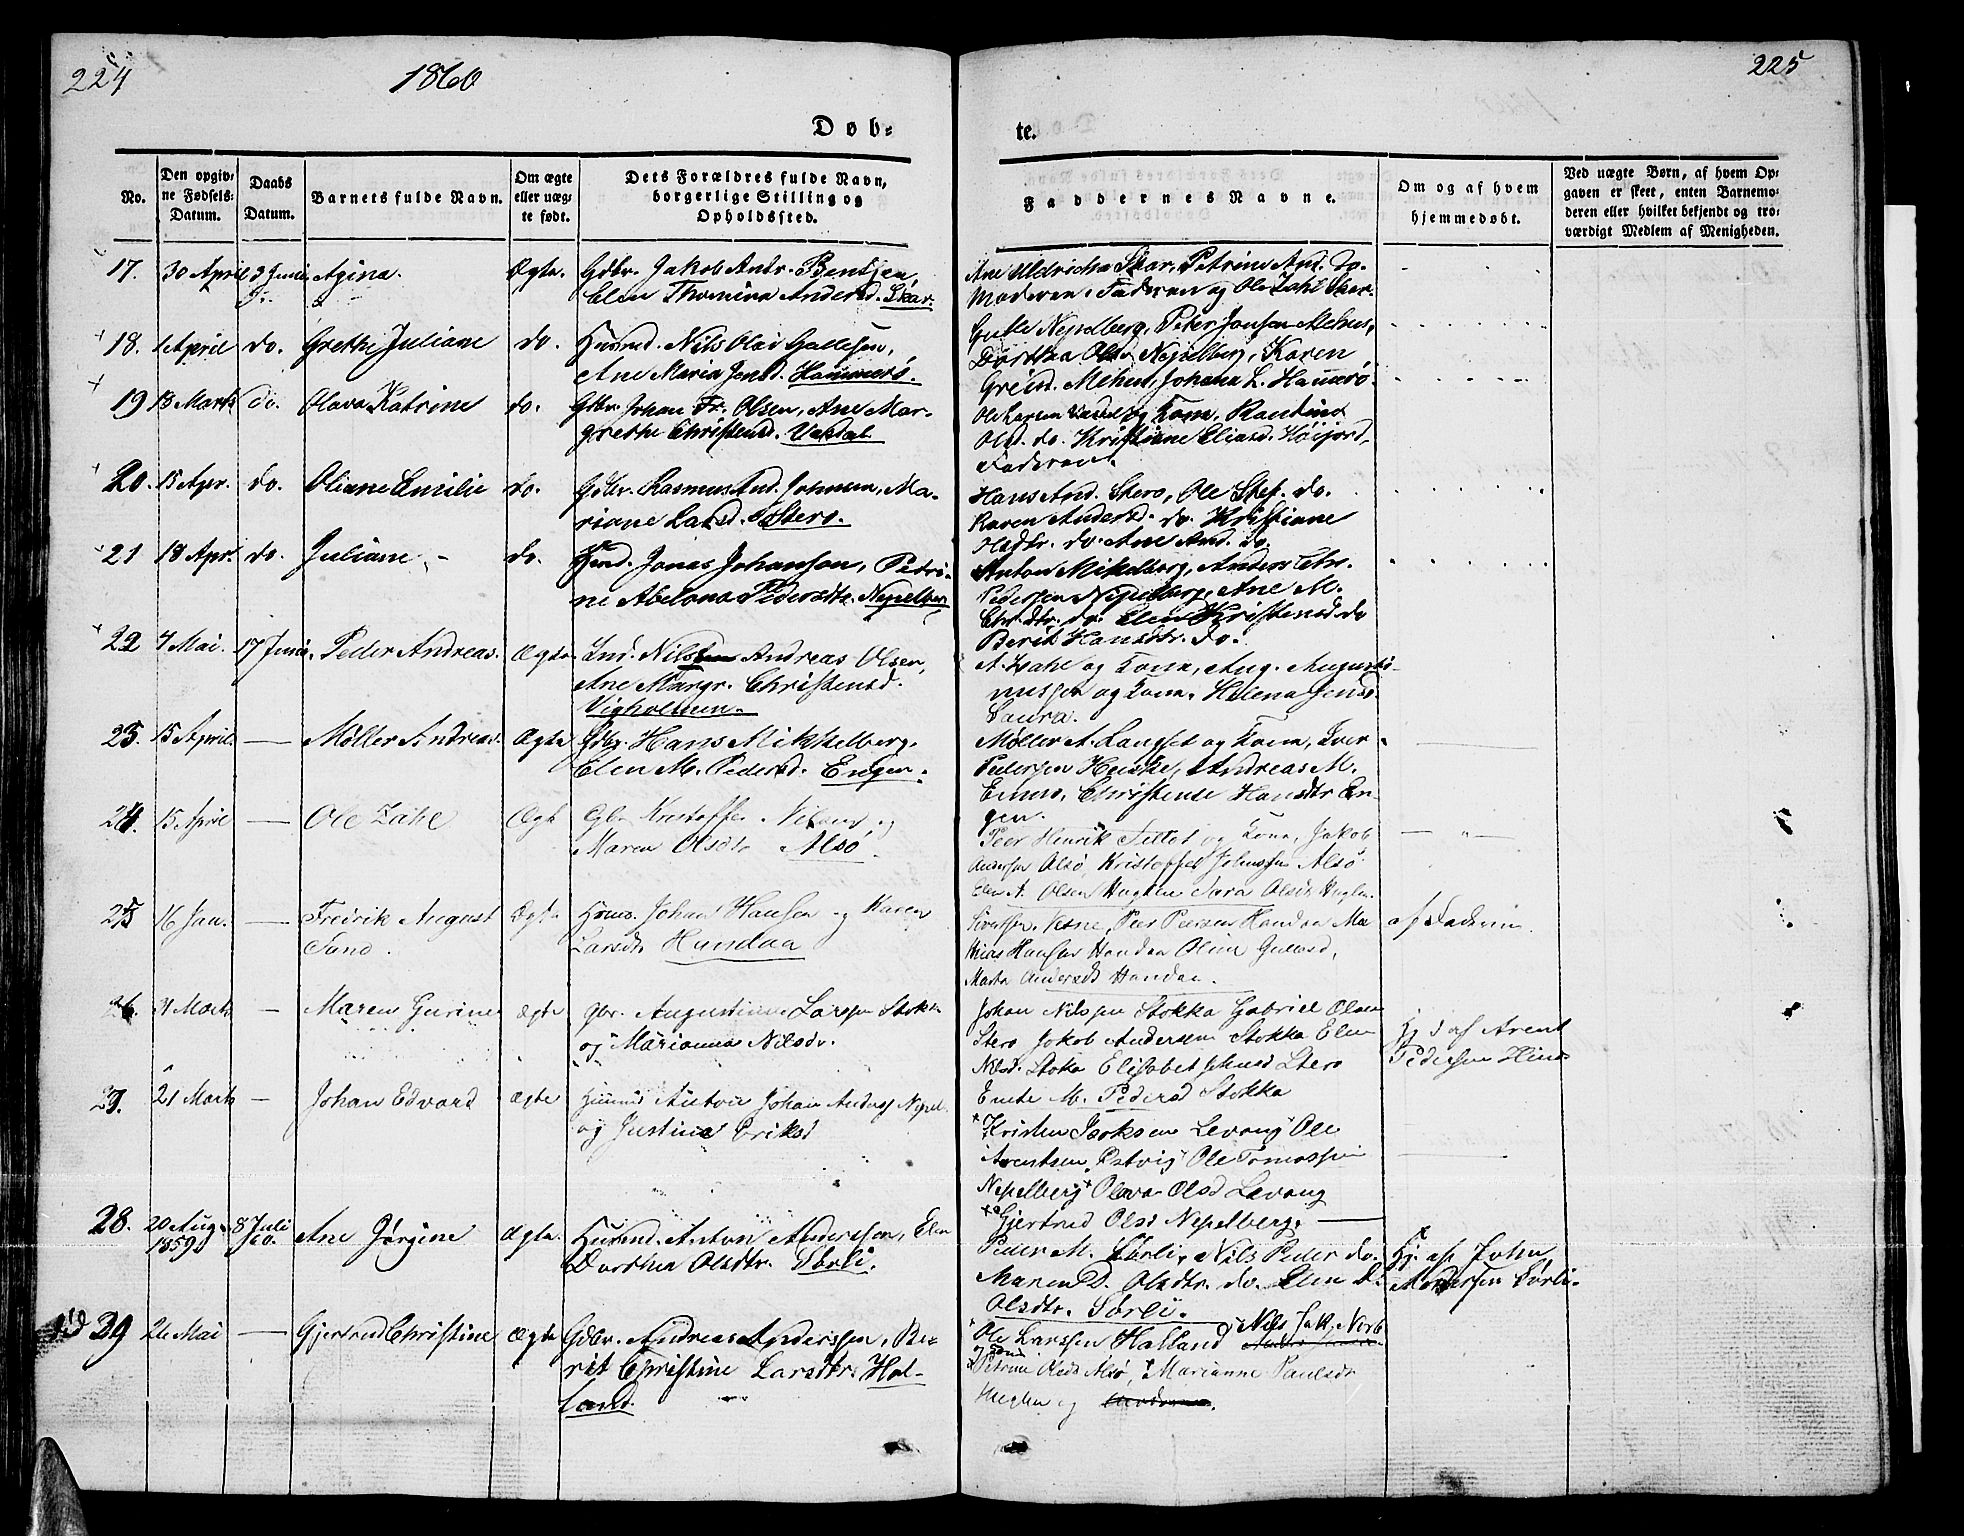 224
1860
225
Døb-
te.
No.
Den opgiv-
ne Fødsels-
Datum.
Daabs
Datum.
Barnets fulde Navn.
Om ægte
eller uæg-
te født.
Dets Forældres fulde Navn,
borgerlige Stilling og
Opholdssted.
Faddernes Navne.
Om og af hvem
hjemmedøbt.
Ved uægte Børn, af hvem Op-
gaven er skeet, enten Barnemo-
deren eller hvilket bekjendt og tro-
værdigt Medlem af Menigheden.
17. 30 April 3 Juni Agina. Ægte. Gdbr. Jakob Andr. Bentsen,
Elen Thomina Andersd. Skar.
Ane Uldricha Skar, Petrine And. do.
Moderen, Faderen og Ole Zahl Skar.
18. 1 April do. Grethe Juliane do. Husmd. Nils Olai
Ane Maria Jensd. Hammerø.
Nepelberg, Peter Jonsen Mehus,
Dorthea Olsd. Nepelberg, Karen
Mehus, Johana L. Hammerø.
19 13 Marts do. Olava Katrine do. Gdbr. Johan Fr. Olsen, Ane Mar-
grethe Christensd. Vasdal
Ole Larsen Vasdal og Kone, Randine
Olsd. do. Kristiane Eliasd. Høijord,
Faderen.
20. 15 Apr. do. Oliane Emilie do. Gdbr. Rasmus And. Johnsen, Ma-
riane Larsd. Stero.
Hans And. Stero, Ole Stef. do.
Karen Andersd. do. Kristiane
do. Ane And. do.
21 18 Apr. do. Juliane - do. Husmd. Jonas Johanson, Petri-
ne Abelona Pedersdtr. Nepelber
Anton Mikelborg, Anders Chr.
Pedersen Nepelberg, Ane M.
Chr.dtr. do. Elen Kristensd. do
Berit Hansdtr. do.
22 4 Mai. 17 Juni. Peder Andreas. Ægte Ind. Nils Andreas Olsen,
Ane Margr. Christensd.
Vigholmen.
A. Zahl og Kone, Aug. Augusti-
nussen og Kone. Helena Jensd.
Laura.
23. 15 April. — Møller Andreas. Ægte Gdbr. Hans Mikkelborg.
Elen M. Pedersd. Engen.
Møller A. Langset og Kone, Iver
Pedersen Heiske, Andreas M.
Christense Hansdtr En-
gen.
24. 15 April — Ole Zahl Ægt Gbr Kristoffer Nilsen og
Maren Olsdtr Alsø.
Peer Henrik og Kone, Jakob
Alsø, Kristoffer Johnssen Alsø
Elen A. Olsen Huglen Sara Olsdtr Huglen.
25 16 Jan. — Fredrik August
Sand. Ægte Husmd. Johan Hansen og Karen
Larsdtr Hundaa
Peer Peersen Handaa Ma
thias Hansen Handaa Oline
Marta Andersdt Handaa.
af Faderen.
26. 4 Marts — Maren Gurine Ægte Gbr. Augustinus Larsen Stokka
og Marianna Nilsdr.
Johan Nilssen Stokka Gabriel Olsen
Stero Jakob Andersen Stokka Elen
Nilsd. Stoka Elisabet Johnsd Stero
M. Pedersd Stokka
Hj d af Arent
Pedersen
27. 21 Marts — Johan Edvard Ægte Husmd Anton Johan Anders Nepel.
og Justine Eriksd
Kristen Isaksen Levang Ole
Arentsen, Ole Tomassen
Nepelberg Olava Olsd Levang
Gjertrud Olsd Nepelberg. —
28. 20 Aug. 8 Juli
1859 1860. Ane Jørgine Ægte. Husmd. Anton Anderssen, Elen
Dorthea Olsdtr. Sørli.
Peder M. Sørli, Nils Peder do.
Maren D. Olsdtr. do. Elen D.
Olsdtr. Sørli.
Hj. af John
Mortensen Sørli.
29 26 Mai — Gjertrud Christine Ægte Gdbr. Andreas Anderssen, Be-
rit Christine Larsdtr. Hal-
land.
Ole Larssen Halland Nils Jak.
Petrine Olsd Alsø, Marianne Paulsdr
Huglen og